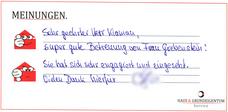 MEINUNGEN.
Sehr geehrter Herr Kloman,
super gute Betreuung von Frau Grebenstein!
Sie hat sich sehr engagiert und eingesetzt.
Vielen Dank hierfür
HAUS & GRUNDEIGENTUM
Service